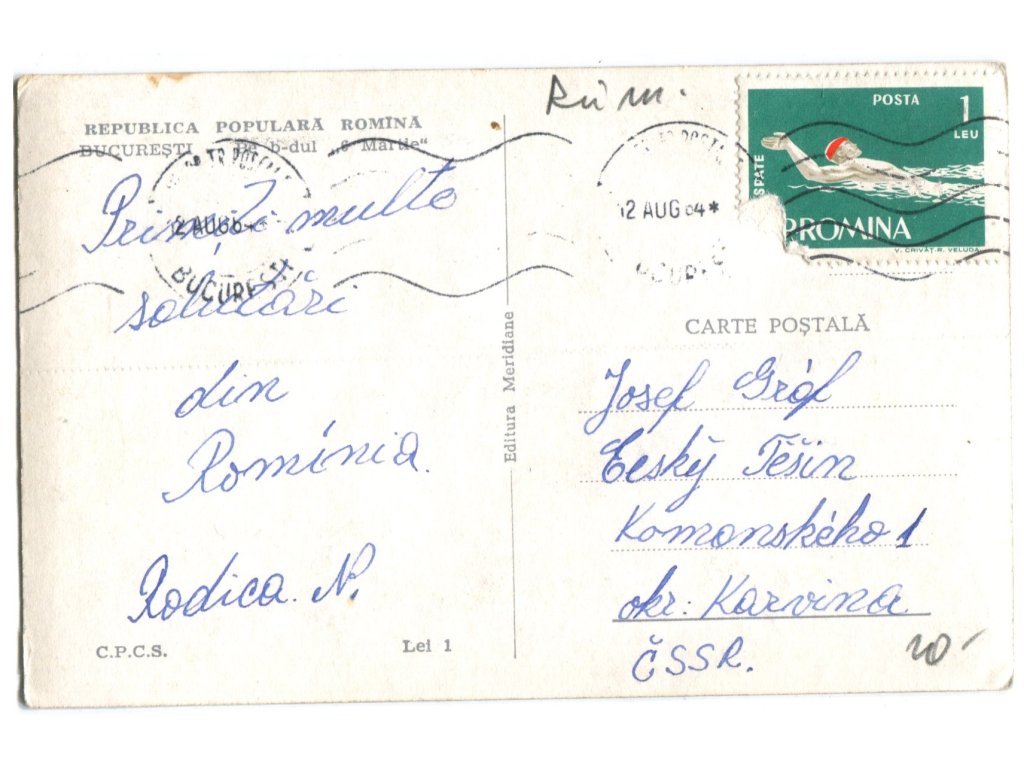 REPUBLICA POPULARĂ ROMÎNĂ
BUCUREȘTI Pe b-dul „6 Martie“
Primiți multe
salutări
din
Romínia.
Rodica. N.
C.P.C.S.
Lei 1
Editura Meridiane
Rúm.
12 AUG 64*
BUCUREȘTI
12 AUG 64*
POSTA
1
LEU
SPATE
PROMINA
V. CRIVĂȚ-R. VELUDA
CARTE POȘTALĂ
Josef Gróf
Český Těšin
Komonského 1
okr: Karvina
ČSSR.
10-